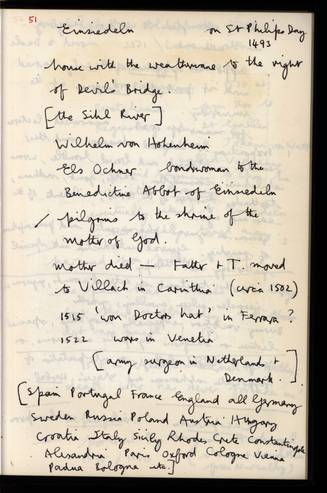 51
Einsiedeln on St Philips Day
1493
house with the weathervane to the right
of Devil's Bridge.
[the Sihl River]
Wilhelm von Hohenheim
Els Ochner bondwoman to the
Benedictine Abbot of Einsiedeln
/ pilgrims to the shrine of the
mother of God.
mother died — Father + T. moved
to Villach in Carinthia (circa 1502)
1515 'won Doctors hat' in Ferrara ?
1522 wars in Venetia
[army surgeon in Netherlands +
Denmark.]
[Spain Portugal France England all Germany
Sweden Russia Poland Austria Hungary
Croatia Italy Sicily Rhodes Crete Constantinople
Alexandria Paris Oxford Cologne Vienna
Padua Bologna etc.]